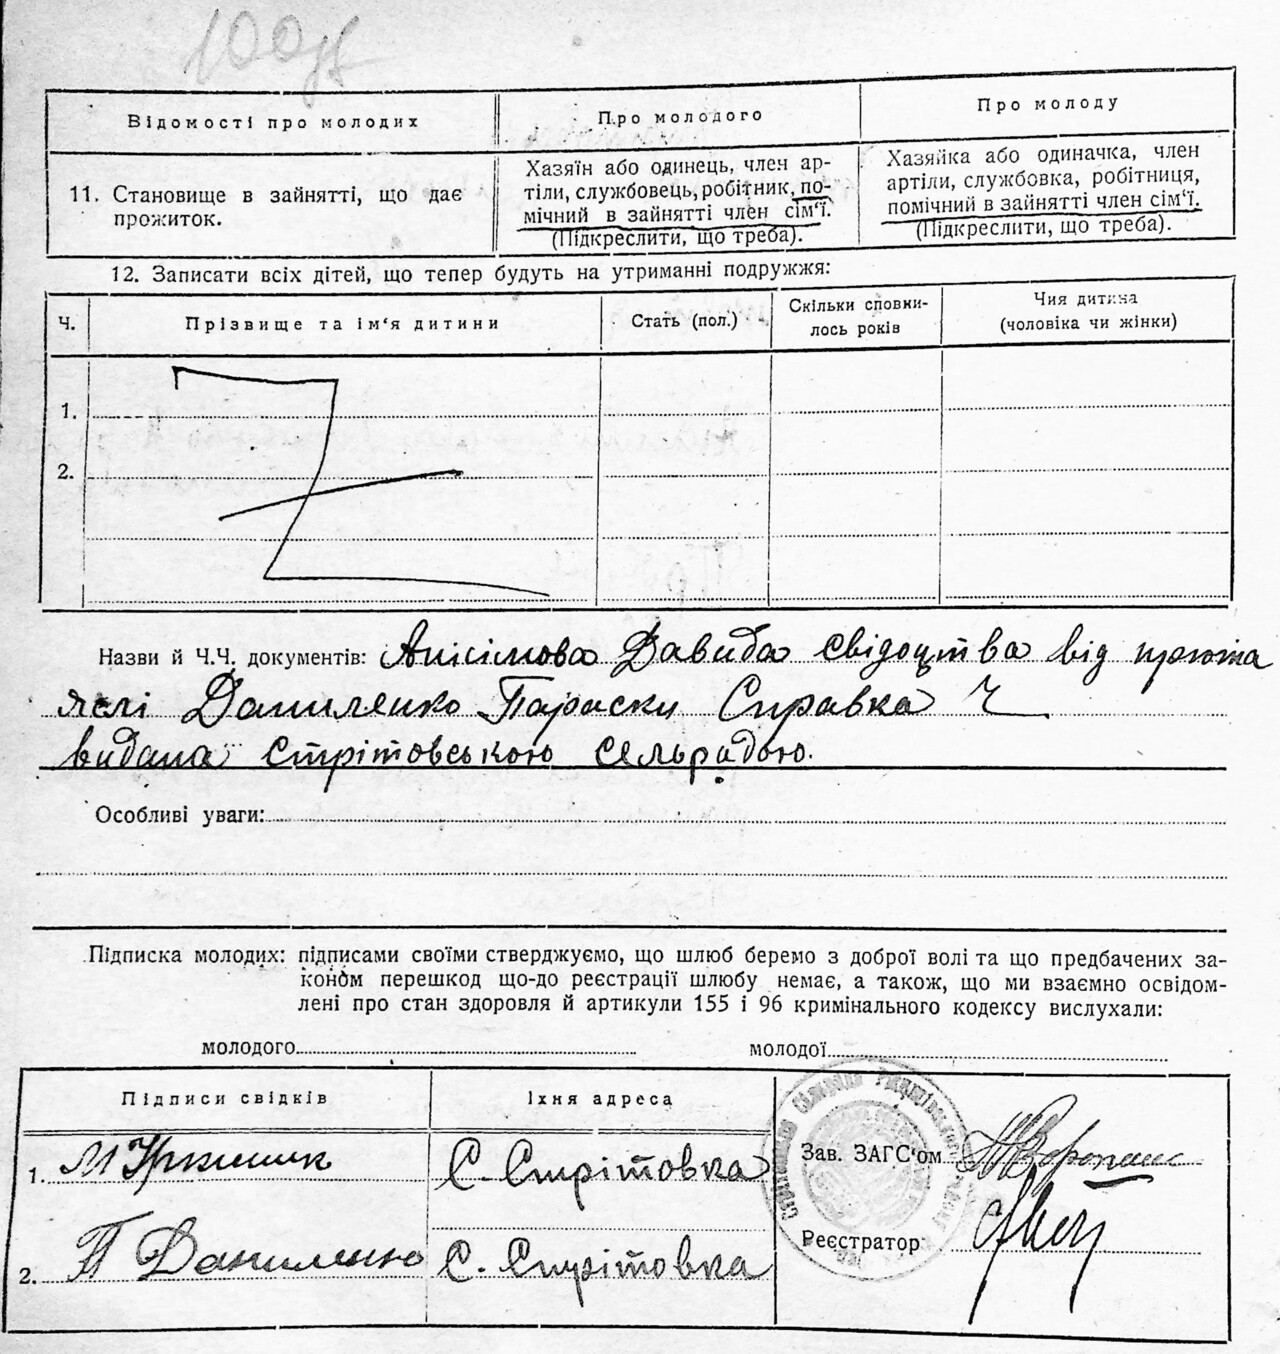 100
Відомості про молодих
Про молодого
Про молоду
11. Становище в зайнятті, що дає
прожиток.
Хазяїн або одинець, член ар-
тіли, службовець, робітник, по-
мічний в зайнятті член сім'ї.
(Підкреслити, що треба).
Хазяйка або одиначка, член
артіли, службовка, робітниця,
помічний в зайнятті член сім'ї.
(Підкреслити, що треба).
12. Записати всіх дітей, що тепер будуть на утриманні подружжя:
Ч.
Прізвище та ім'я дитини
Стать (пол.)
Скільки сповни-
лось років
Чия дитина
(чоловіка чи жінки)
1.
2.
Назви й Ч.Ч. документів: Анісімова Давида свідоцтва від
яслі Даниленко Параски Справка Ч
видана Стрітовською сельрадою.
Особливі уваги:
Підписка молодих: підписами своїми стверджуємо, що шлюб беремо з доброї волі та що предбачених за-
коном перешкод що-до реєстрації шлюбу немає, а також, що ми взаємно освідом-
лені про стан здоровля й артикули 155 і 96 кримінального кодексу вислухали:
молодого
молодої
Підписи свідків
Їхня адреса
1. М
С. Стрітовка
Зав. ЗАГС'ом
2. П Даниленко
С. Стрітовка
Реєстратор: